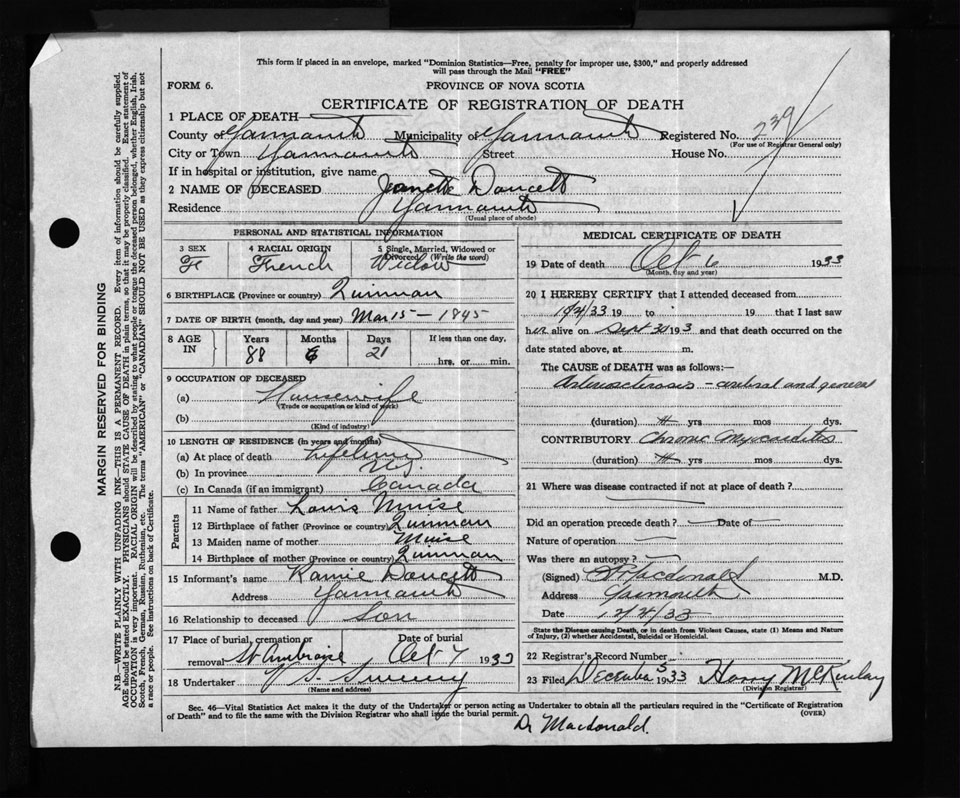 This form if placed in an envelope, marked "Dominion Statistics—Free, penalty for improper use, $300," and properly addressed
will pass through the Mail "FREE"
FORM 6.
PROVINCE OF NOVA SCOTIA
CERTIFICATE OF REGISTRATION OF DEATH
1 PLACE OF DEATH—
County of Yarmouth Municipality of Yarmouth Registered No. 239
(For use of Registrar General only)
City or Town Yarmouth Street House No.
If in hospital or institution, give name
2 NAME OF DECEASED Janette Doucett
Residence Yarmouth
(Usual place of abode)
PERSONAL AND STATISTICAL INFORMATION
3 SEX 4 RACIAL ORIGIN 5 Single, Married, Widowed or Divorced (Write the word)
F French Widow
6 BIRTHPLACE (Province or country) Quinnan
7 DATE OF BIRTH (month, day and year) Mar 15 — 1845
8 AGE IN Years Months Days If less than one day,
88 6 21 hrs. or min.
9 OCCUPATION OF DECEASED
(a) Housewife
(Trade or occupation or kind of work)
(b)
(Kind of industry)
10 LENGTH OF RESIDENCE (in years and months)
(a) At place of death Lifetime
(b) In province
(c) In Canada (if an immigrant) Canada
Parents
11 Name of father Louis Muise
12 Birthplace of father (Province or country) Quinnan
13 Maiden name of mother Muise
14 Birthplace of mother (Province or country) Quinnan
15 Informant's name Doucett
Address Yarmouth
16 Relationship to deceased Son
17 Place of burial, cremation or removal St Ambroise Date of burial Oct 7 1933
18 Undertaker V S Sweeny
(Name and address)
MEDICAL CERTIFICATE OF DEATH
19 Date of death Oct 6 1933
(Month, day and year)
20 I HEREBY CERTIFY that I attended deceased from
19 to 19 that I last saw
her alive on Sept 193 and that death occurred on the
date stated above, at m.
The CAUSE of DEATH was as follows:—
Arteriosclerosis — cerebral and general
(duration) yrs mos dys.
CONTRIBUTORY Chronic Myocarditis
(duration) yrs mos dys.
21 Where was disease contracted if not at place of death?
Did an operation precede death? — Date of —
Nature of operation —
Was there an autopsy? —
(Signed) Macdonald M.D.
Address Yarmouth
Date 12/4/33
State the Disease causing Death, or in death from Violent Causes, state (1) Means and Nature
of Injury, (2) whether Accidental, Suicidal or Homicidal.
22 Registrar's Record Number
23 Filed December 5 1933 Harry McKinlay
(Division Registrar)
Sec. 46—Vital Statistics Act makes it the duty of the Undertaker or person acting as Undertaker to obtain all the particulars required in the "Certificate of Registration
of Death" and to file the same with the Division Registrar who shall issue the burial permit.
(OVER)
Dr Macdonald.
MARGIN RESERVED FOR BINDING
N.B.—WRITE PLAINLY WITH UNFADING INK—THIS IS A PERMANENT RECORD. Every item of information should be carefully supplied.
AGE should be stated EXACTLY. PHYSICIANS should STATE CAUSE OF DEATH in plain terms, so that it may be properly classified. Exact statement of
OCCUPATION is very important. RACIAL ORIGIN will be described by stating to what people or tongue the deceased person belonged, whether English, Irish,
Scotch, French, German, Russian, Ruthenian, etc. The terms "AMERICAN" or "CANADIAN" SHOULD NOT BE USED as they express citizenship but not
a race or people. See instructions on back of Certificate.